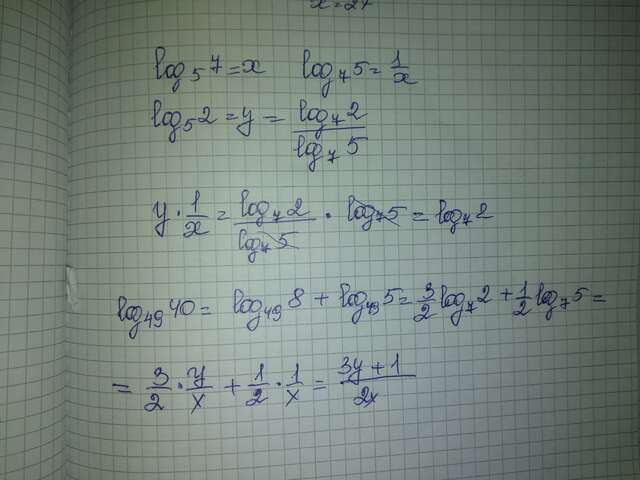 x = 27
log₅7 = x log₇5 = 1/x
log₅2 = y = log₇2 / log₇5
y · 1/x = log₇2 / log₇5 · log₇5 = log₇2
log₄₉40 = log₄₉8 + log₄₉5 = 3/2 log₇2 + 1/2 log₇5 =
= 3/2 · y/x + 1/2 · 1/x = (3y + 1)/2x